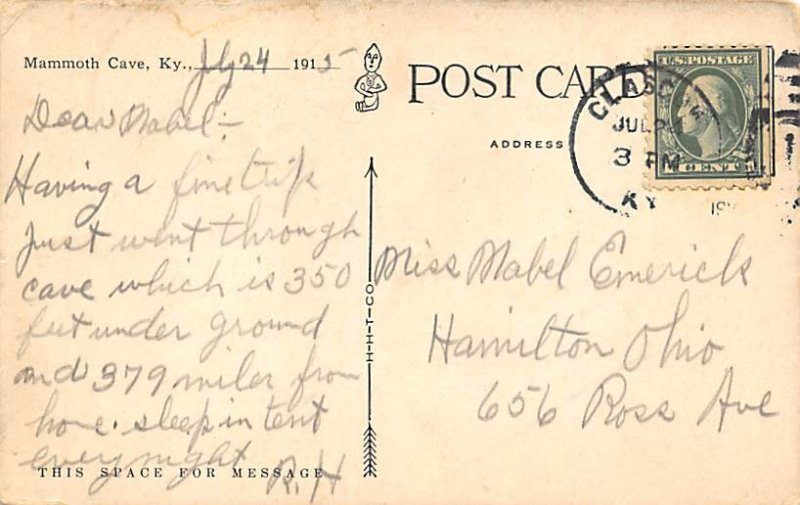 Mammoth Cave, Ky., Jly 24 1915
Dear Mabel:-
Having a fine trip
just went through
cave which is 350
feet under ground
and 379 miles from
home. sleep in tent
every night
R.H
THIS SPACE FOR MESSAGE
H-H-T-CO
POST CARD
ADDRESS
U.S. POSTAGE
GLASGOW
JUL 24
3 PM
KY
191
Miss Mabel Emerick
Hamilton Ohio
656 Ross Ave